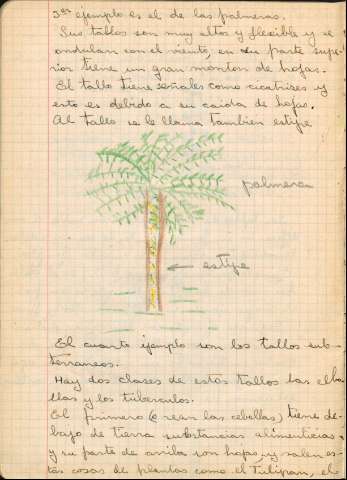 3er ejemplo es el de las palmeras.
Sus tallos son muy altos y flexible y se
ondulan con el viento, en su parte supe-
rior tiene un gran monton de hojas.
El tallo tiene señales como cicatrizes y
esto es debido a su caida de hojas.
Al tallo se le llama tambien estipe
palmera
estipe
El cuarto ejemplo son los tallos sub-
terraneos.
Hay dos clases de estos tallos las
llas y los tuberculos.
El primero (o sean las cebollas) tiene de-
bajo de tierra substancias alimenticias
y su parte de arriba son hojas y salen es-
tas cosas de plantas como el Tulipan, el